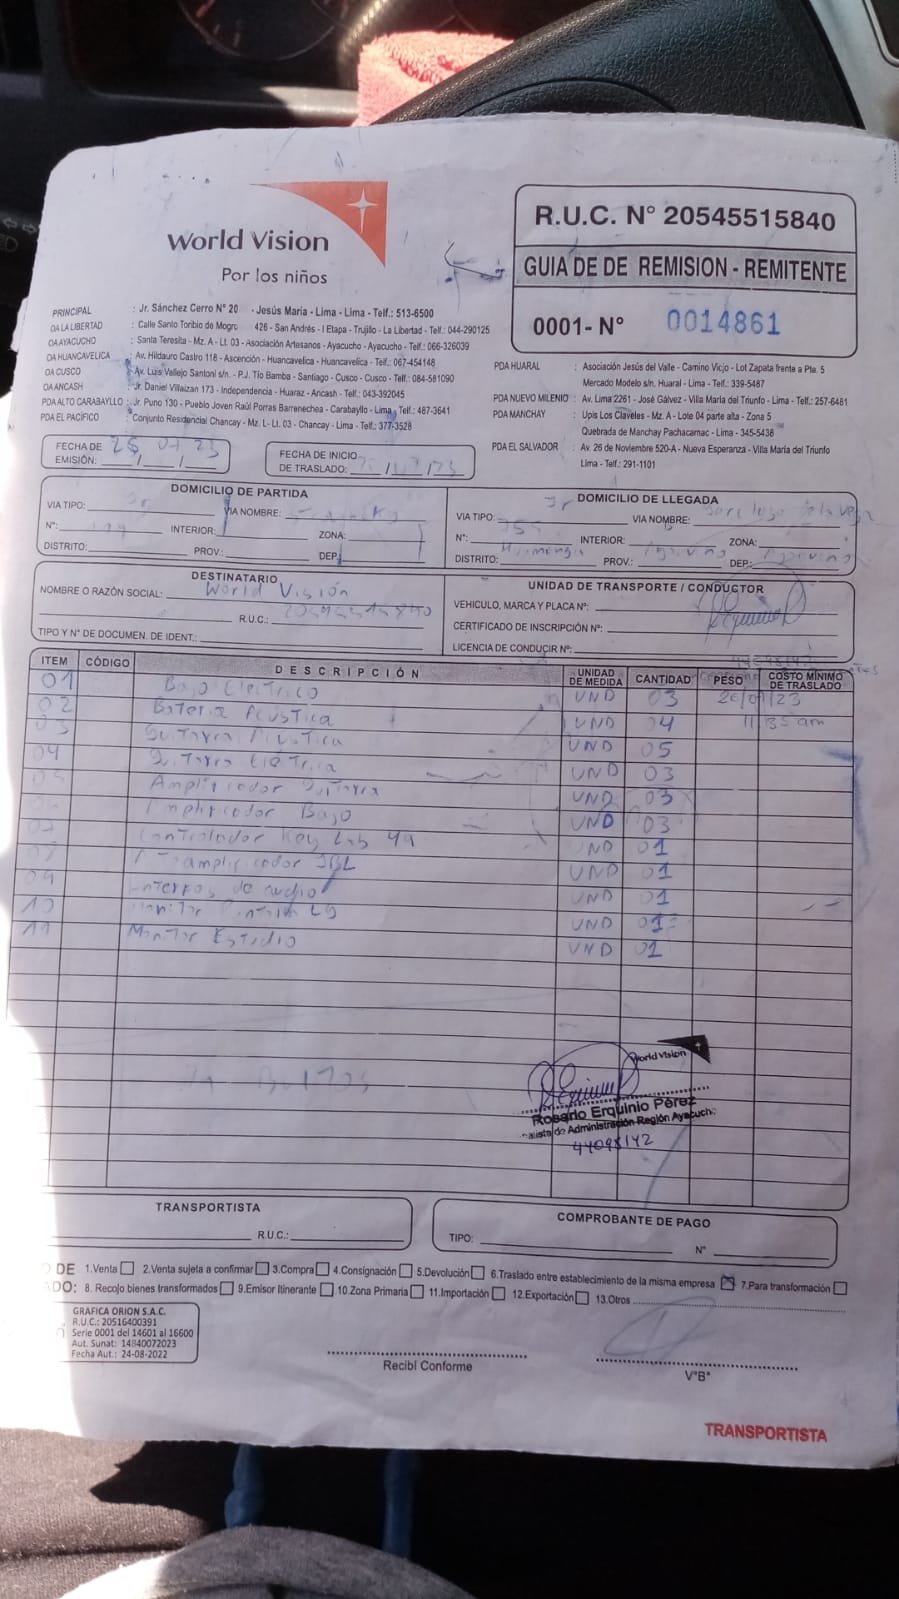 World Vision
Por los niños
R.U.C. N° 20545515840
GUIA DE DE REMISION - REMITENTE
0001- N° 0014861
PRINCIPAL : Jr. Sánchez Cerro N° 20 - Jesús María - Lima - Lima - Telf.: 513-6500
OA LA LIBERTAD : Calle Santo Toribio de Mogro 426 - San Andrés - I Etapa - Trujillo - La Libertad - Telf.: 044-290125
OA AYACUCHO : Santa Teresita - Mz. A - Lt. 03 - Asociación Artesanos - Ayacucho - Ayacucho - Telf.: 066-326039
OA HUANCAVELICA : Av. Hildauro Castro 118 - Ascención - Huancavelica - Huancavelica - Telf.: 067-454148
OA CUSCO : Av. Luis Vallejo Santoni s/n. - P.J. Tío Bamba - Santiago - Cusco - Cusco - Telf.: 084-581090
OA ANCASH : Jr. Daniel Villaizan 173 - Independencia - Huaraz - Ancash - Telf.: 043-392045
PDA ALTO CARABAYLLO : Jr. Puno 130 - Pueblo Joven Raúl Porras Barrenechea - Carabayllo - Lima - Telf.: 487-3641
PDA EL PACÍFICO : Conjunto Residencial Chancay - Mz. L- Lt. 03 - Chancay - Lima - Telf.: 377-3528
PDA HUARAL : Asociación Jesús del Valle - Camino Viejo - Lot Zapata frente a Pte. 5
Mercado Modelo s/n. Huaral - Lima - Telf.: 339-5487
PDA NUEVO MILENIO : Av. Lima 2261 - José Gálvez - Villa María del Triunfo - Lima - Telf.: 257-6481
PDA MANCHAY : Upis Los Claveles - Mz. A - Lote 04 parte alta - Zona 5
Quebrada de Manchay Pachacamac - Lima - 345-5438
PDA EL SALVADOR : Av. 26 de Noviembre 520-A - Nueva Esperanza - Villa María del Triunfo
Lima - Telf.: 291-1101
FECHA DE EMISIÓN: 25/07/23
FECHA DE INICIO DE TRASLADO: / /23
DOMICILIO DE PARTIDA
VIA TIPO: Jr VIA NOMBRE:
N°: INTERIOR: ZONA:
DISTRITO: PROV.: DEP.:
DOMICILIO DE LLEGADA
VIA TIPO: Jr VIA NOMBRE: de la Vega
N°: INTERIOR: ZONA:
DISTRITO: Huamanga PROV.: DEP:
DESTINATARIO
NOMBRE O RAZÓN SOCIAL: World Visión
R.U.C.: 20545515840
TIPO Y N° DE DOCUMEN. DE IDENT.:
UNIDAD DE TRANSPORTE / CONDUCTOR
VEHICULO, MARCA Y PLACA N°:
CERTIFICADO DE INSCRIPCIÓN N°:
LICENCIA DE CONDUCIR N°:
44098142
ITEM CÓDIGO DESCRIPCIÓN UNIDAD DE MEDIDA CANTIDAD PESO COSTO MÍNIMO DE TRASLADO
01 Bajo Electrico UND 03 26/07/23
02 Bateria Acústica UND 04 11:35 am
03 Guitarra Acustica UND 05
04 Guitarra Eléctrica UND 03
05 Amplificador Guitarra UND 03
Amplificador Bajo UND 03
07 Controlador Key Lab 49 UND 01
amplificador JBL UND 01
09 de audio UND 01
10 Monitor UND 01
11 Monitor Estudio UND 01
World Vision
Rosario Erquinio Pérez
alista de Administración Región Ayacucho
44098142
TRANSPORTISTA
R.U.C.:
COMPROBANTE DE PAGO
TIPO: N°
DE 1.Venta 2.Venta sujeta a confirmar 3.Compra 4.Consignación 5.Devolución 6.Traslado entre establecimiento de la misma empresa 7.Para transformación
DO: 8. Recojo bienes transformados 9.Emisor Itinerante 10.Zona Primaria 11.Importación 12.Exportación 13.Otros
GRAFICA ORION S.A.C.
R.U.C.: 20516400391
Serie 0001 del 14601 al 16600
Aut. Sunat: 14840072023
Fecha Aut.: 24-08-2022
Recibí Conforme
V°B°
TRANSPORTISTA